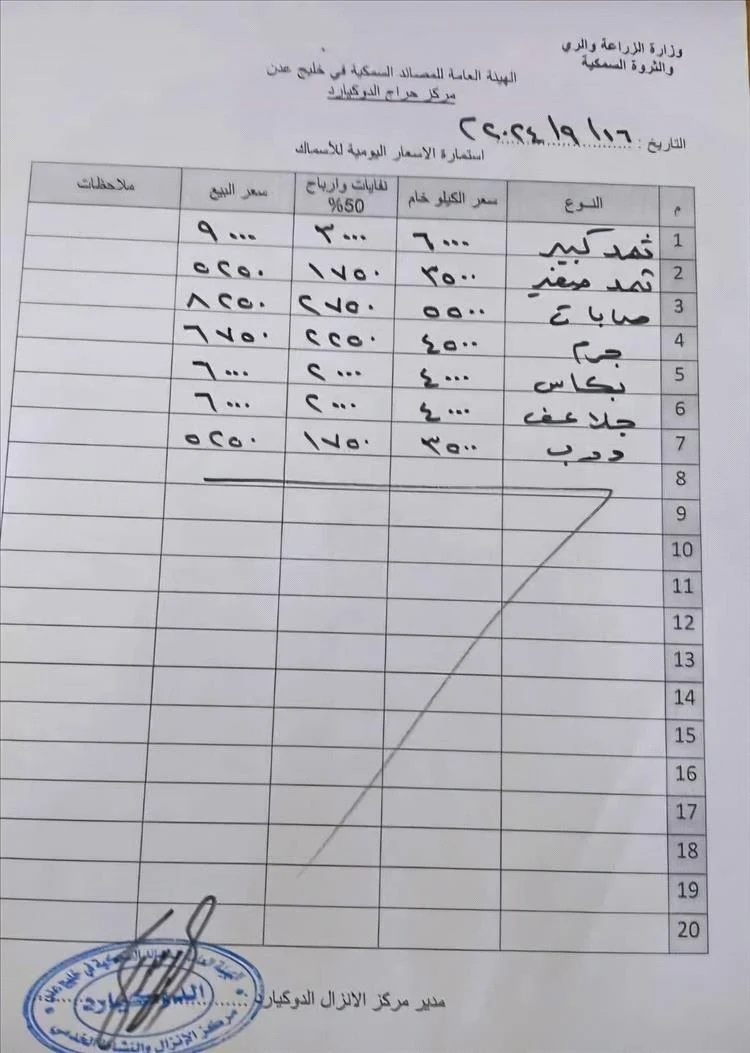 وزارة الزراعة والري
والثروة السمكية
الهيئة العامة للمصائد السمكية في خليج عدن
مركز حراج الدوكيارد
التاريخ : ١٦/٩/٢٠٢٤
استمارة الاسعار اليومية للأسماك
م النوع سعر الكيلو خام نفايات وارباح 50% سعر البيع ملاحظات
1 ثمد كبير ٦٠٠٠ ٣٠٠٠ ٩٠٠٠
2 ثمد صغير ٣٥٠٠ ١٧٥٠ ٥٢٥٠
3 ٥٥٠٠ ٢٧٥٠ ٨٢٥٠
4 جرم ٤٥٠٠ ٢٢٥٠ ٦٧٥٠
5 بكاس ٤٠٠٠ ٢٠٠٠ ٦٠٠٠
6 جلاعف ٤٠٠٠ ٢٠٠٠ ٦٠٠٠
7 ٣٥٠٠ ١٧٥٠ ٥٢٥٠
8
9
10
11
12
13
14
15
16
17
18
19
20
مدير مركز الانزال الدوكيارد :